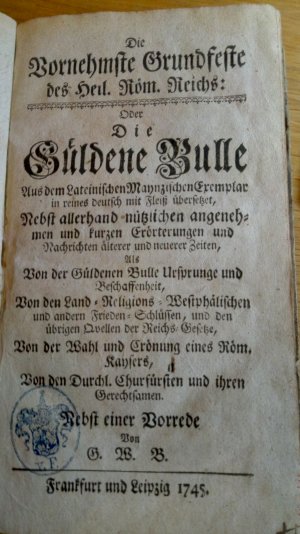 Die
Vornehmste Grundfeste
des Heil. Röm. Reichs:
Oder
Die
Güldene Bulle
Aus dem Lateinischen Maynzischen Exemplar
in reines deutsch mit Fleiß übersetzet,
Nebst allerhand nützlichen angeneh-
men und kurzen Erörterungen und
Nachrichten älterer und neuerer Zeiten,
Als
Von der Güldenen Bulle Ursprunge und
Beschaffenheit,
Von den Land-Religions-Westphälischen
und andern Frieden-Schlüssen, und den
übrigen Quellen der Reichs-Gesetze,
Von der Wahl und Crönung eines Röm.
Kaysers,
Von den Durchl. Churfürsten und ihren
Gerechtsamen.
Nebst einer Vorrede
Von
G. W. B.
Frankfurt und Leipzig 1745.